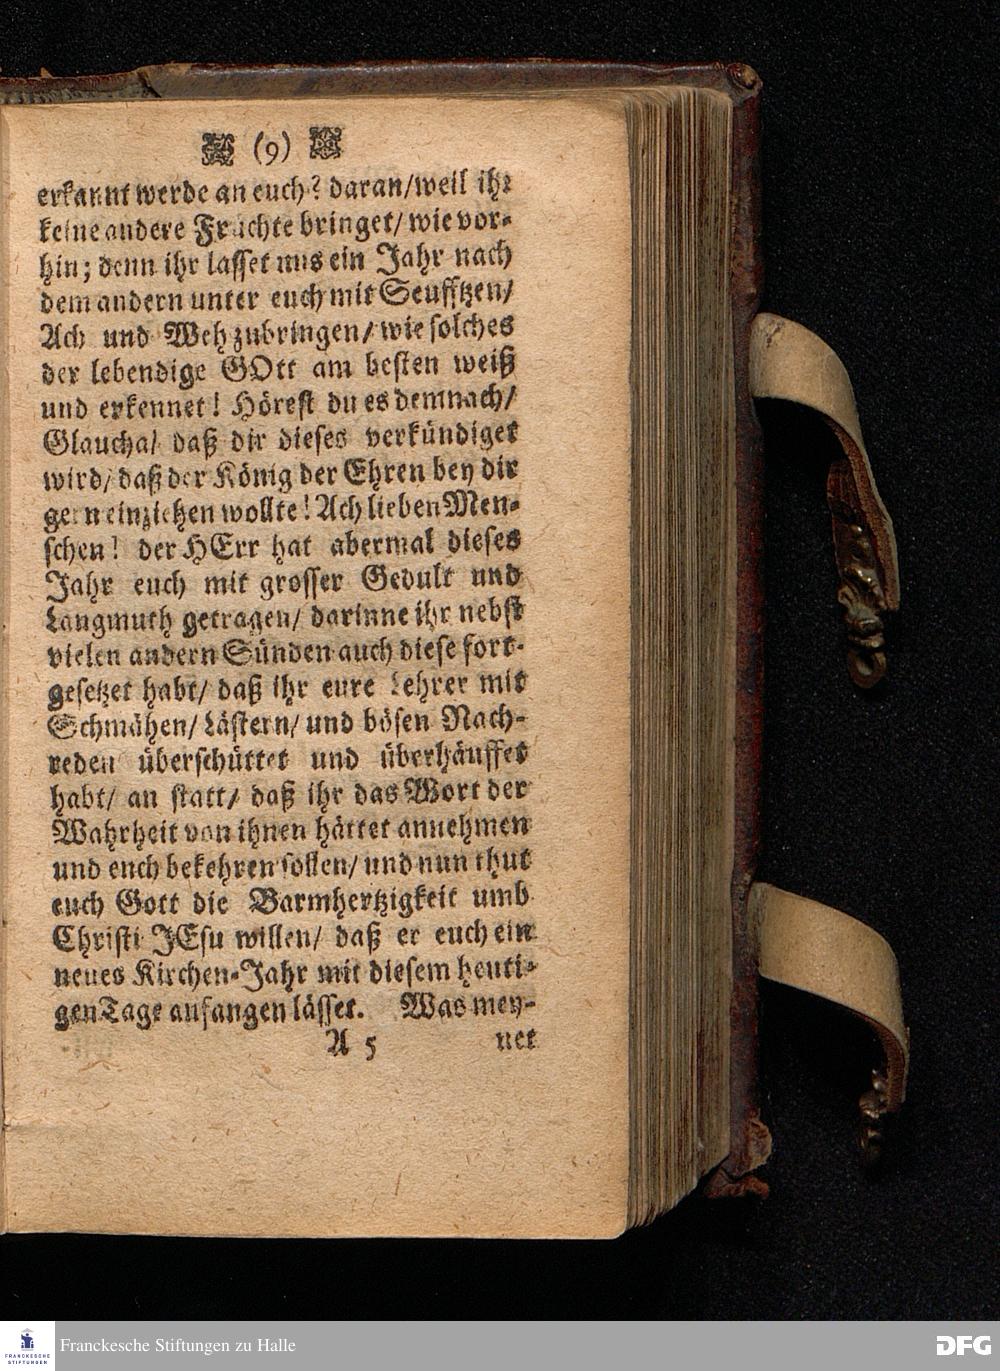 (9)
erkannt werde an euch? daran/weil ihr
keine andere Früchte bringet/ wie vor-
hin; denn ihr lasset uns ein Jahr nach
dem andern unter euch mit Seufftzen/
Ach und Weh zubringen/ wie solches
der lebendige GOtt am besten weiß
und erkennet! Hörest du es demnach/
Glaucha/ daß dir dieses verkündiget
wird/ daß der König der Ehren bey dir
gern einziehen wollte! Ach lieben Men-
schen! der HErr hat abermal dieses
Jahr euch mit grosser Gedult und
Langmuth getragen/ darinne ihr nebst
vielen andern Sünden auch diese fort-
gesetzet habt/ daß ihr eure Lehrer mit
Schmähen/ Lästern/ und bösen Nach-
reden überschüttet und überhäuffet
habt/ an statt/ daß ihr das Wort der
Wahrheit von ihnen hättet annehmen
und euch bekehren sollen/ und nun thut
euch Gott die Barmhertzigkeit umb
Christi JEsu willen/ daß er euch ein
neues Kirchen-Jahr mit diesem heuti-
gen Tage anfangen lässet. Was mey-
A 5 net
FRANCKESCHE
STIFTUNGEN
Franckesche Stiftungen zu Halle
DFG